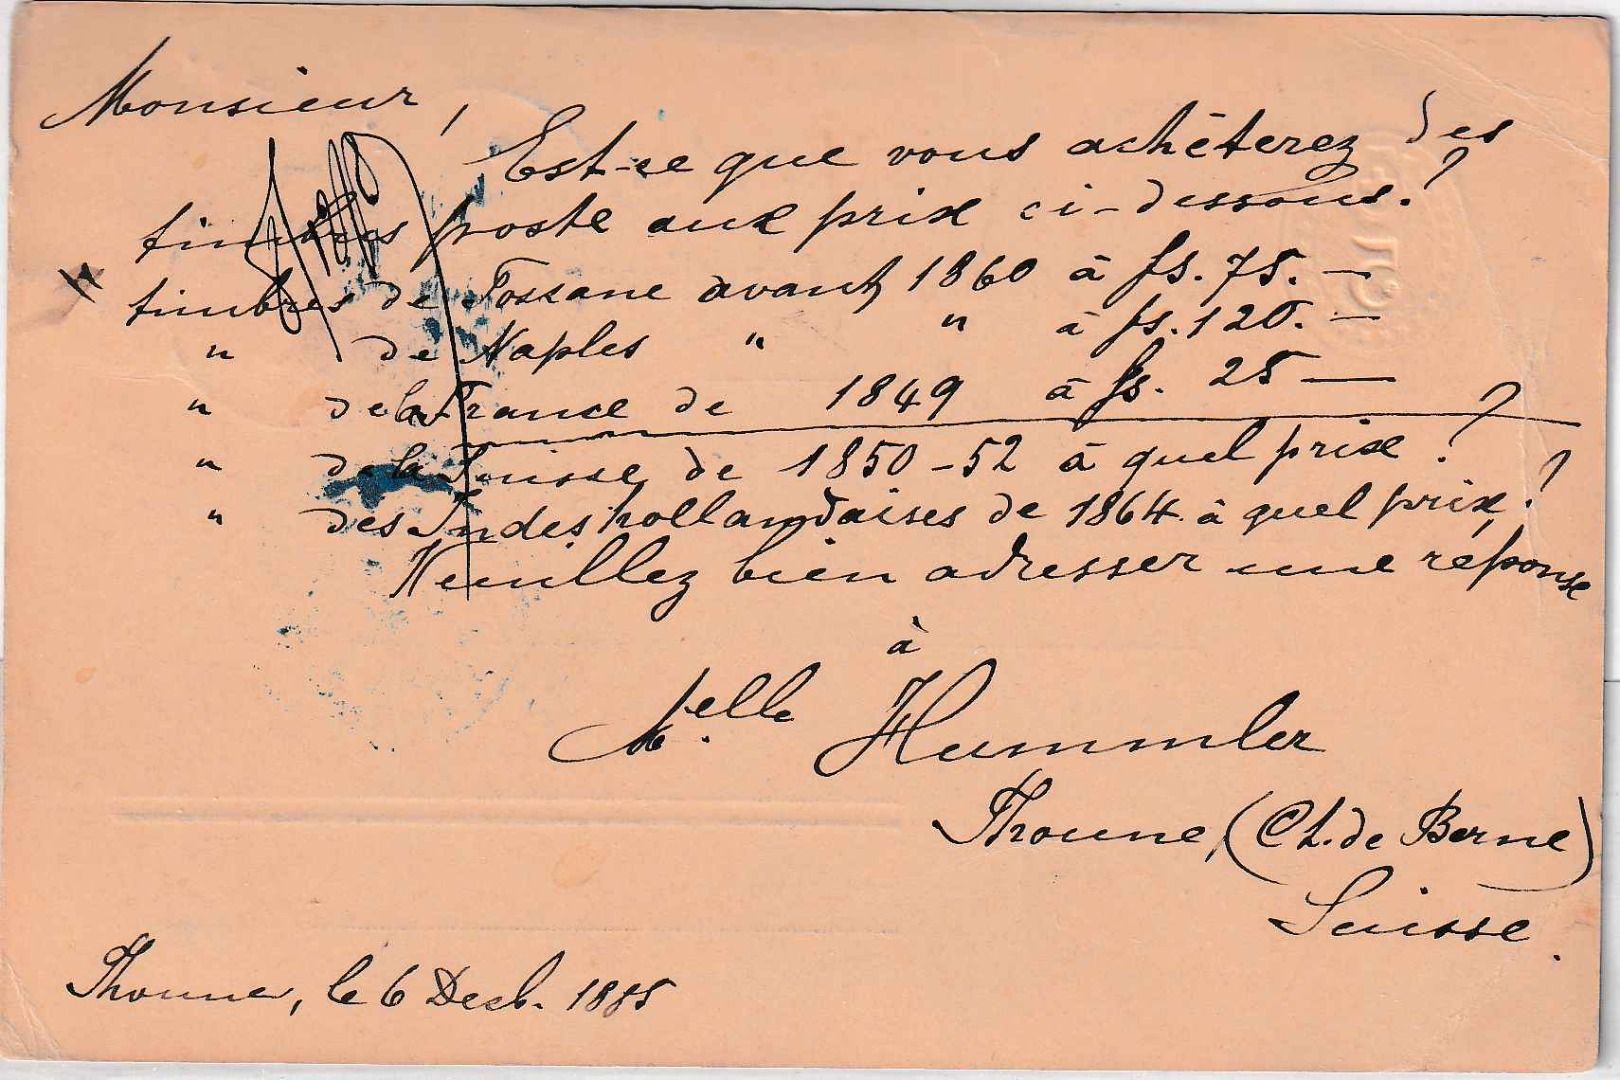 Monsieur,
Est-ce que vous achèterez des
timbres poste aux prix ci-dessous.?
timbres de Toscane avant 1860 à fs. 75. —
" de Naples " " à fs. 120. —
" de la France de 1849 à fs. 25 —
" de la Suisse de 1850-52 à quel prix?
" des Indes hollandaises de 1864 à quel prix?
Veuillez bien adresser une réponse
à
Melle Hummler
Thoune, (Ct. de Berne)
Suisse.
Thoune, le 6 Decb. 1885